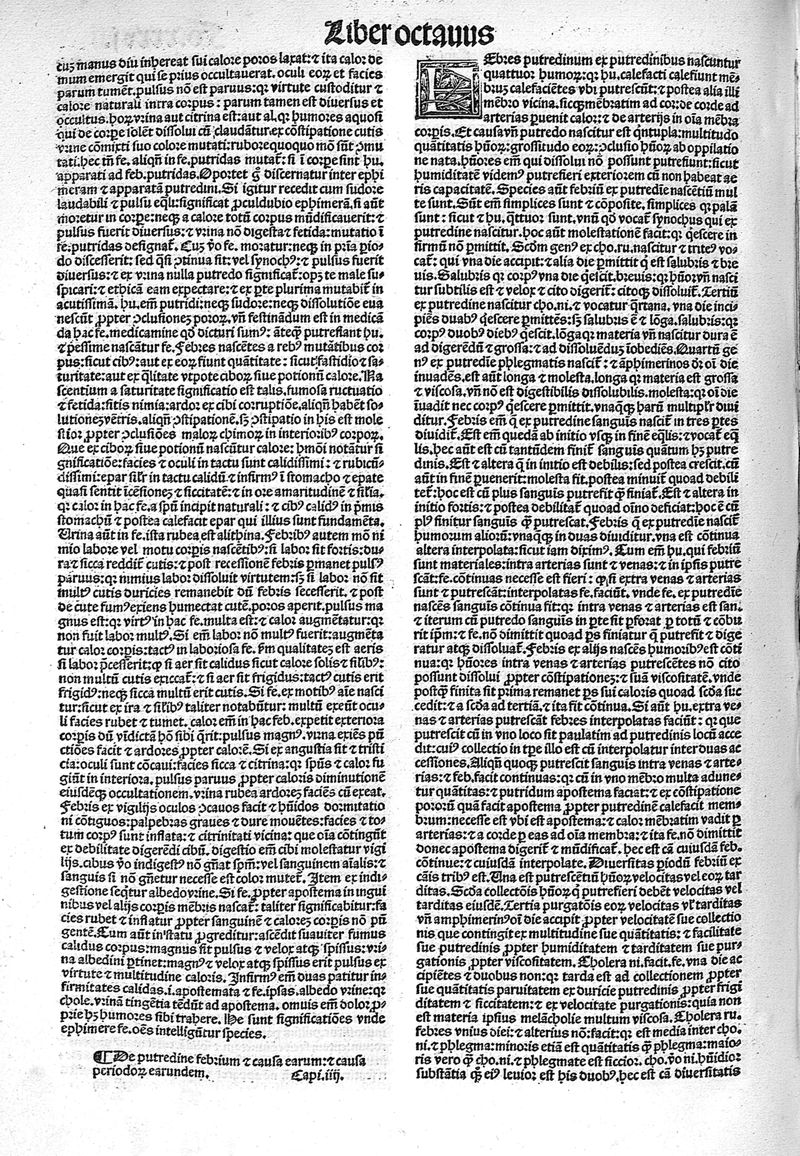 Liber octauus
cuꝫ manus diu inhereat sui calore poros laxat: ⁊ ita calor de
mum emergit qui se prius occultauerat. oculi eoꝝ et facies
parum tumēt. pulsus nō est paruus: qꝛ virtute custoditur ⁊
calore naturali intra corpus: parum tamen est diuersus et
occultus. hoꝝ vrina aut citrina est: aut al. qꝛ humores aquosi
qui de corpe solēt dissolui cū claudātur. ex cōstipatione cutis
vrine cōmixti suo colore mutati: rubore quoquo mō sūt
tati. hec tn̄ fe. aliqn̄ in fe. putridas mutat̄: si ī corpe sint hu.
apparati ad feb. putridas. Oportet ḡ discernatur inter ephi
meram ⁊ apparatā putredini. Si igitur recedit cum sudore
laudabili ⁊ pulsu eq̄li: significat procul dubio ephimerā. si aūt
moretur in corpe: neqꝫ a calore totū corpus mūdificauerit: ⁊
pulsus fuerit diuersus: ⁊ vrina nō digesta ⁊ fetida: mutatio ī
fe. putridas designat̄. Cuꝫ ṽo fe. moratur: neqꝫ in pria pio-
do discesserit: sed q̄si ꝯtinua sit: vel synochꝰ: ⁊ pulsus fuerit
diuersus: ⁊ ex vrina nulla putredo significat̄: opꝫ te male su-
spicari: ⁊ ethicā eam expectare: ⁊ ex pte plurima mutabit̄ in
acutissimā. hu. em̄ putridi: neqꝫ sudore: neqꝫ dissolutiōe eua
nescūt ꝓpter ꝯclusionē poroꝝ. vn̄ festinādum est in medicā
da hac fe. medicamine qd̄ dicturi sumꝰ: āteqꝫ putrefiant hu.
⁊ pessime nascātur fe. Febres nascētes a rebꝰ mutātibus cor
pus: sicut cibꝰ: aut ex eoꝝ fiunt quātitate: sicut fastidio ⁊ sa-
turitate: aut ex q̄litate vtpote ciboꝝ siue potionū calore. Na
scentium a saturitate significatio est talis. fumosa ructuatio
⁊ fetida: sitis nimia: ardor ex cibi corruptiōe. aliqn̄ habēt so-
lutionē vētris. aliqn̄ ꝯstipationē. sꝫ ꝯstipatio in his est mole
stior ꝓpter ꝯclusiōes maloꝝ chimoꝝ in interioribꝰ corpoꝝ.
Que ex ciboꝝ siue potionū nascūtur calore: hmōi notātur si
gnificatiōe: facies ⁊ oculi in tactu sunt calidissimi: ⁊ rubicū-
dissimi: epar silr̄ in tactu calidū ⁊ infirmꝰ ī stomacho ⁊ epate
quasi sentit īcēsionē ⁊ siccitatē: ⁊ in ore amaritudinē ⁊ silia.
qꝛ calor in hac fe. a spū incipit naturali: ⁊ cibꝰ calidꝰ in pmis
stomachū ⁊ postea calefacit epar qui illius sunt fundamēta.
Urina aūt in fe. ista rubea est alithina. Febribꝰ autem mō ni
mio labore vel motu corpis nascētibꝰ: si labor sit fortis: du-
ra ⁊ sicca reddit̄ cutis: ⁊ post recessionē febris pmanet pulsꝰ
paruus: qꝛ nimius labor dissoluit virtutem: sꝫ si labor nō sit
multꝰ cutis duricies remanebit dū febris secesserit. ⁊ post
de cute fumꝰ exiens humectat cutē. poros aperit. pulsus ma
gnus est: qꝛ virtꝰ in hac fe. multa est: ⁊ calor augmētatur: qꝛ
non fuit labor multꝰ. Si em̄ labor nō multꝰ fuerit: augmēta
tur calor corpis: tactꝰ in laboriosa fe. fm̄ qualitatē est aeris
si labor pcesserit: qꝫ si aer sit calidus sicut calore solis ⁊ silibꝰ:
non multū cutis exiccat̄: ⁊ si aer sit frigidus: tactꝰ cutis erit
frigidꝰ: neqꝫ sicca multū erit cutis. Si fe. ex motibꝰ aīe nasci
tur: sicut ex ira ⁊ silibꝰ taliter notabūtur: multū exeūt ocu-
li facies rubet ⁊ tumet. calor em̄ in hac feb. expetit exteriora
corpis dū vīdictā hō sibi q̄rit: pulsus magnꝰ. vrina exiēs pū
ctiōes facit ⁊ ardorē ꝓpter calorē. Si ex angustia sit ⁊ tristi
cia: oculi sunt cōcaui: facies sicca ⁊ citrina: qꝛ spūs ⁊ calor fu
giūt in interiora. pulsus paruus ꝓpter caloris diminutionē
eiusdēqꝫ occultationem. vrina rubea ardorē faciēs cū exeat.
Febris ex vigilijs oculos ꝯcauos facit ⁊ hūidos dormitatio
ni cōtiguos: palpebras graues ⁊ dure mouētes: facies ⁊ to-
tum corpꝰ sunt inflata: ⁊ citrinitati vicina: que oīa cōtingūt
ex debilitate digerēdi cibū. digestio em̄ cibi molestatur vigi
lijs. cibus ṽo indigestꝰ nō gn̄at spm̄: vel sanguinem aīalis: ⁊
sanguis si nō gn̄etur necesse est color mutet̄. Item ex indi-
gestione seq̄tur albedo vrine. Si fe. ꝓpter apostema in ingui
nibus vel alijs corpis mēbris nascat̄: taliter significabitur: fa
cies rubet ⁊ inflatur ꝓpter sanguinē ⁊ calorē corpis nō pū
gentē. Cum aūt in statu progreditur: ascēdit suauiter fumus
calidus corpus: magnus sit pulsus ⁊ velox atqꝫ spissus: vri-
na albedini ptinet: magnꝰ ⁊ velox atqꝫ spissus erit pulsus ex
virtute ⁊ multitudine caloris. Infirmꝰ em̄ duas patitur in-
firmitates calidas. i. apostemata ⁊ fe. ipsas. albedo vrine: qꝛ
chole. vrinā tingētia tēdūt ad apostema. omuis em̄ dolor ꝓ-
prie hꝫ humores sibi trahere. He sunt significatiōes vnde
ephimere fe. oēs intelligūtur species.
¶ De putredine febrium ⁊ causa earum: ⁊ causa
periodoꝝ earundem. Capi. iiij.
FEbres putredinum ex putredinibus nascuntur
quattuor humoꝝ: qꝛ hu. calefacti calefiunt mē-
bruꝫ calefaciētes vbi putrescūt: ⁊ postea alia illi
mēbro vicina. sicqꝫ mēbratim ad cor: de corde ad
arterias puenit calor: ⁊ de arterijs in oīa mēbra
corpis. Et causa vn̄ putredo nascitur est q̄ntupla: multitudo
quātitatis hūoꝝ: grossitudo eoꝝ: ꝯclusio hūoꝝ ab oppilatio
ne nata. hūores em̄ qui dissolui nō possunt putrefiunt: sicut
humiditatē videmꝰ putrefieri exteriorem cū non habeat ae
ris capacitatē. Species aūt febriū ex putredīe nascētiū mul
te sunt. Sūt em̄ simplices sunt ⁊ cōposite. simplices qꝛ palā
sunt: sicut ⁊ hu. q̄ttuor sunt. vnū qd̄ vocat̄ synochus qui ex
putredine nascitur. hoc aūt molestationē facit: qꝛ q̄escere in
firmū nō pmittit. Scd̄m genꝰ ex cho. ru. nascitur ⁊ triteꝰ vo-
cat̄: qui vna die accipit: ⁊ alia die pmittit q̄ est salubris ⁊ bre
uis. Salubris qꝛ corpꝰ vna die q̄escit. breuis: qꝛ hūor vn̄ nasci
tur subtilis est ⁊ velox ⁊ cito digerit̄: citoqꝫ dissoluit̄. Tertiū
ex putredine nascitur cho. ni. ⁊ vocatur q̄rtana. vna die inci-
piēs duabꝰ q̄escere pmittēs: sꝫ salubris ē ⁊ lōga. salubris: qꝛ
corpꝰ duobꝰ diebꝰ q̄escit. lōga: qꝛ materia vn̄ nascitur dura ē
ad digerēdū ⁊ grossa: ⁊ ad dissoluēduꝫ īobediēs. Quartū ge
nꝰ ex putredīe phlegmatis nascit̄: ⁊ āphimerinos dr̄: oī die
inuadēs. est aūt longa ⁊ molesta. longa qꝛ materia est grossa
⁊ viscosa. vn̄ nō est digestibilis dissolubilis. molesta: qꝛ oī die
īuadit nec corpꝰ q̄escere pmittit. vnaqueqꝫ harū multiplr̄ diui
ditur. Febris em̄ q̄ ex putredine sanguis nascit̄ in tres ptes
diuidit̄. Est em̄ quedā ab initio vsqꝫ in finē eq̄lis: ⁊ vocat̄ eq̄
lis. hec aūt est cū tantūdem finit̄ sanguis quātum hꝫ putre
dinis. Est ⁊ altera q̄ in initio est debilis: sed postea crescit. cū
aūt in finē puenerit: molesta fit. postea minuit̄ quoad debili
tet̄: hoc est cū plus sanguis putrefit q̄ꝫ finiat̄. Est ⁊ altera in
initio fortis: ⁊ postea debilitat̄ quoad oīno deficiat: hoc ē cū
plꝰ finitur sanguis q̄ꝫ putrescat. Febris q̄ ex putredīe nascit̄
humorum alioꝝ: vnaqueqꝫ in duas diuiditur. vna est cōtinua
altera interpolata: sicut iam diximꝰ. Cum em̄ hu. qui febriū
sunt materiales: intra arterias sunt ⁊ venas: ⁊ in ipsis putre
scāt: fe. cōtinuas necesse est fieri: qꝫ si extra venas ⁊ arterias
sunt ⁊ putrescāt: interpolatas fe. faciūt. vnde fe. ex putredīe
nascēs sanguis cōtinua fit: qꝛ intra venas ⁊ arterias est san.
⁊ iterum cū putredo sanguis in pte fit pforat̄ p totū ⁊ cōbu
rit ipm̄: ⁊ fe. nō dimittit quoad ps finiatur q̄ putrefit ⁊ dige
ratur atqꝫ dissoluat̄. Febris ex alijs nascēs humoribꝰ est cōti
nua: qꝛ hūores intra venas ⁊ arterias putrescētes nō cito
possunt dissolui ꝓpter cōstipationē: ⁊ suā viscositatē. vnde
postqꝫ finita sit prima remanet ps sui caloris quoad scd̄a suc
cedit: ⁊ a scd̄a ad tertiā. ⁊ ita fit cōtinua. Si aūt hu. extra ve-
nas ⁊ arterias putrescāt febres interpolatas faciūt: qꝛ que
putrescit cū in vno loco sit paulatim ad putredinis locū acce
dit: cuiꝰ collectio in tpe illo est cū interpolatur inter duas ac
cessiones. Aliqn̄ quoqꝫ putrescit sanguis intra venas ⁊ arte-
rias: ⁊ feb. facit continuas: qꝛ cū in vno mēbro multa adune-
tur quātitas: ⁊ putridum apostema faciat: ⁊ ex cōstipatione
pororū quā facit apostema ꝓpter putredinē calefacit mem-
brum: necesse est vbi est apostema: ⁊ calor mēbratim vadit p
arterias: ⁊ a corde p eas ad oīa membra: ⁊ ita fe. nō dimittit
donec apostema digerit̄ ⁊ mūdificat̄. hec est cā cuiusdā feb.
cōtinue: ⁊ cuiusdā interpolate. Diuersitas piodū febriū ex
cāis tribꝰ est. Una est putrescētiū hūoꝝ velocitas vel eoꝝ tar
ditas. Scd̄a collectōis hūoꝝ q̄ putrefieri debēt velocitas vel
tarditas eiusdē. Tertia purgatōis eoꝝ velocitas vl̄ tarditas
vn̄ amphimerinꝰ oī die accipit ꝓpter velocitatē sue collectio
nis que contingit ex multitudine sue quātitatis: ⁊ facilitate
sue putredinis ꝓpter humiditatem ⁊ tarditatem sue pur-
gationis ꝓpter viscositatem. Cholera ni. facit fe. vna die ac
cipiētes ⁊ duobus non: qꝛ tarda est ad collectionem ꝓpter
sue quātitatis paruitatem ex duricie putredinis ꝓpter frigi
ditatem ⁊ siccitatem: ⁊ ex velocitate purgationis: quia non
est materia ipsius melācholie multum viscosa. Cholera ru.
febres vnius diei: ⁊ alterius nō: facit: qꝛ est media inter cho.
ni. ⁊ phlegma: minoris etiā est quātitatis q̄ꝫ phlegma: maio-
ris vero q̄ꝫ cho. ni. ⁊ phlegmate est siccior. cho. ṽo ni. hūidior
substātia q̄ꝫ eiꝰ leuior est his duobꝰ. hec est cā diuersitatis